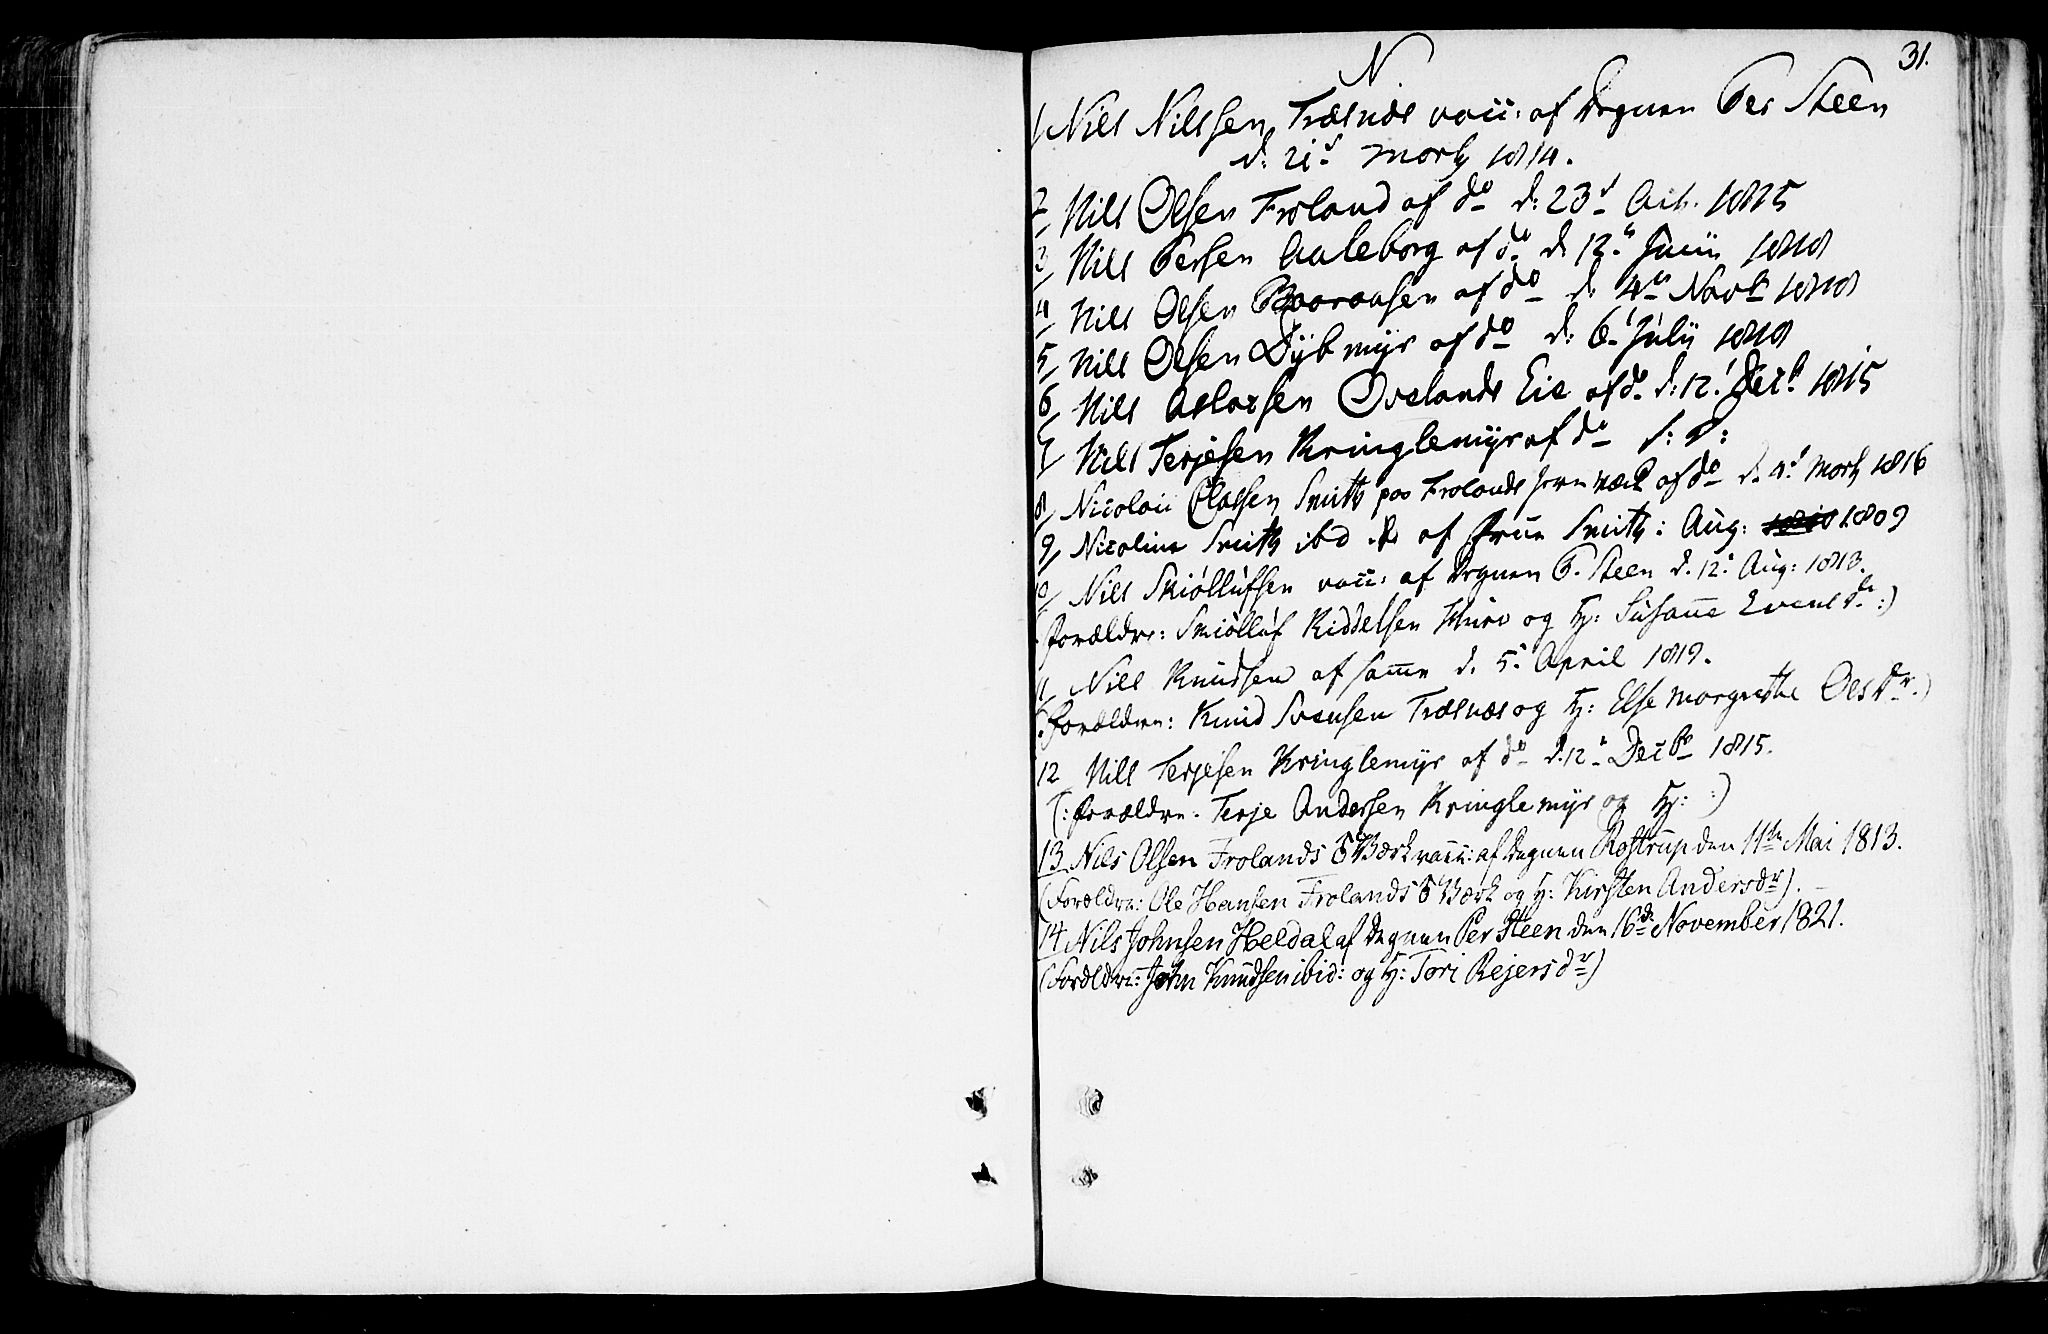 31.
N.
1/ Nils Nilssen Trælnæs vacc: af Degnen Per Steen
d: 21d Marty 1814.
2/ Nils Olsen Froland af do d: 23d Oct. 1815
3/ Nils Persen Aaleborg af do d. 12te Junii 1818
4/ Nils Olsen af do d. 4de Novb 1818
5/ Nils Olsen Dybmyr af do d: 6t July 1818
6/ Nils Aslacsen Ovelands Eie af do d: 12t Decb 1815
7/ Nils Terjesen Kringlemyr af do d: d:
8/ Nicolai Classen Smith paa Frolands Jernværk af do d. 4d Marty 1816
9/ Nicoline Smith ibd af Frue Smith: Aug: 1809
10/ Nils Skiølløfsen vacc: af Degnen P. Steen d. 12t Aug: 1813.
(Forældre: Skiølløf Kiddelsen og H: Susanne Evensdr:)
11 Nils Knudsen af samme d. 5t April 1819.
(:Forældre: Knud Svensen Trælnæs og H: Else Margrethe Olsdr.)
12 Nils Terjesen Kringlemyr af do d. 12t Decbr 1815.
(: Forældre: Terje Andersen Kringlemyr og H: :)
13 Nils Olsen Frolands Værk vacc: af Degnen Rostrup den 11te Mai 1813.
(Forældre: Ole Hansen Frolands Værk og H: Kirsten Andersdr). –
14 Nils Johnsen Heldal af Degnen Per Steen den 16de November 1821.
(Forældre: John Knudsen ibid: og H: Tori Rejersdr)